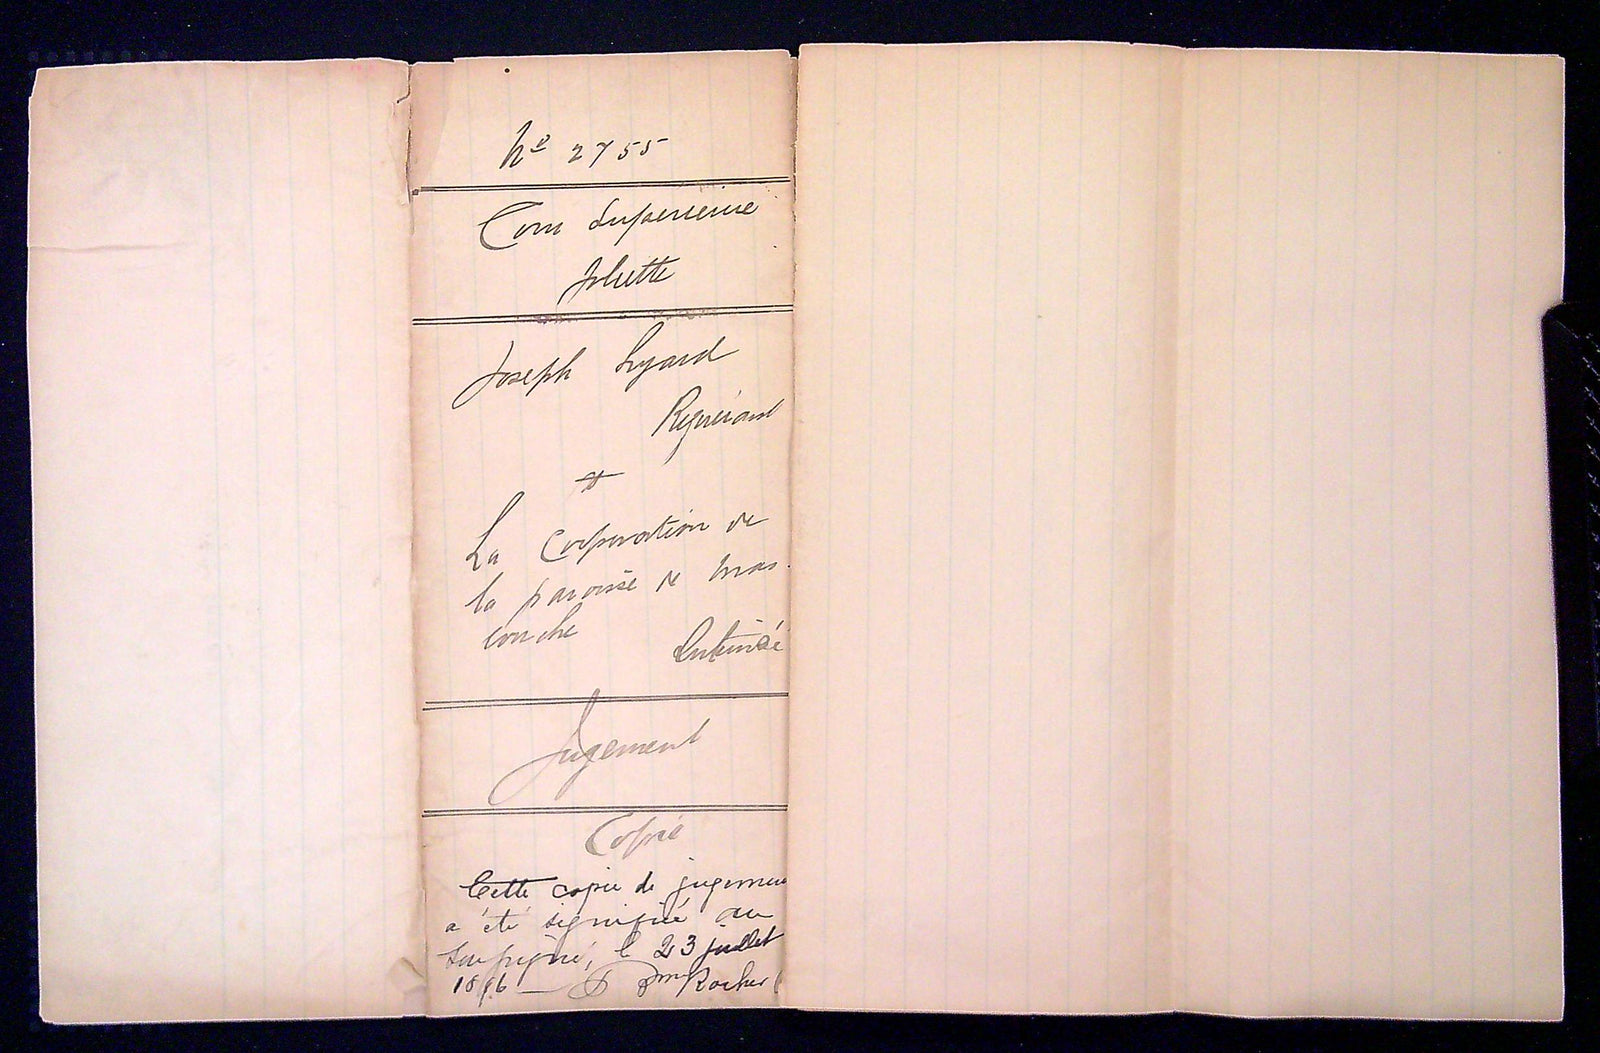 No 2755
Cour Superieure
Joliette
Joseph
Requérant
&
La Corporation de
la paroisse de Mas-
couche
Intimée
Jugement
Copie
Cette copie de jugement
a été signifiée au
soussigné, le 23 juillet
1896 Rocher